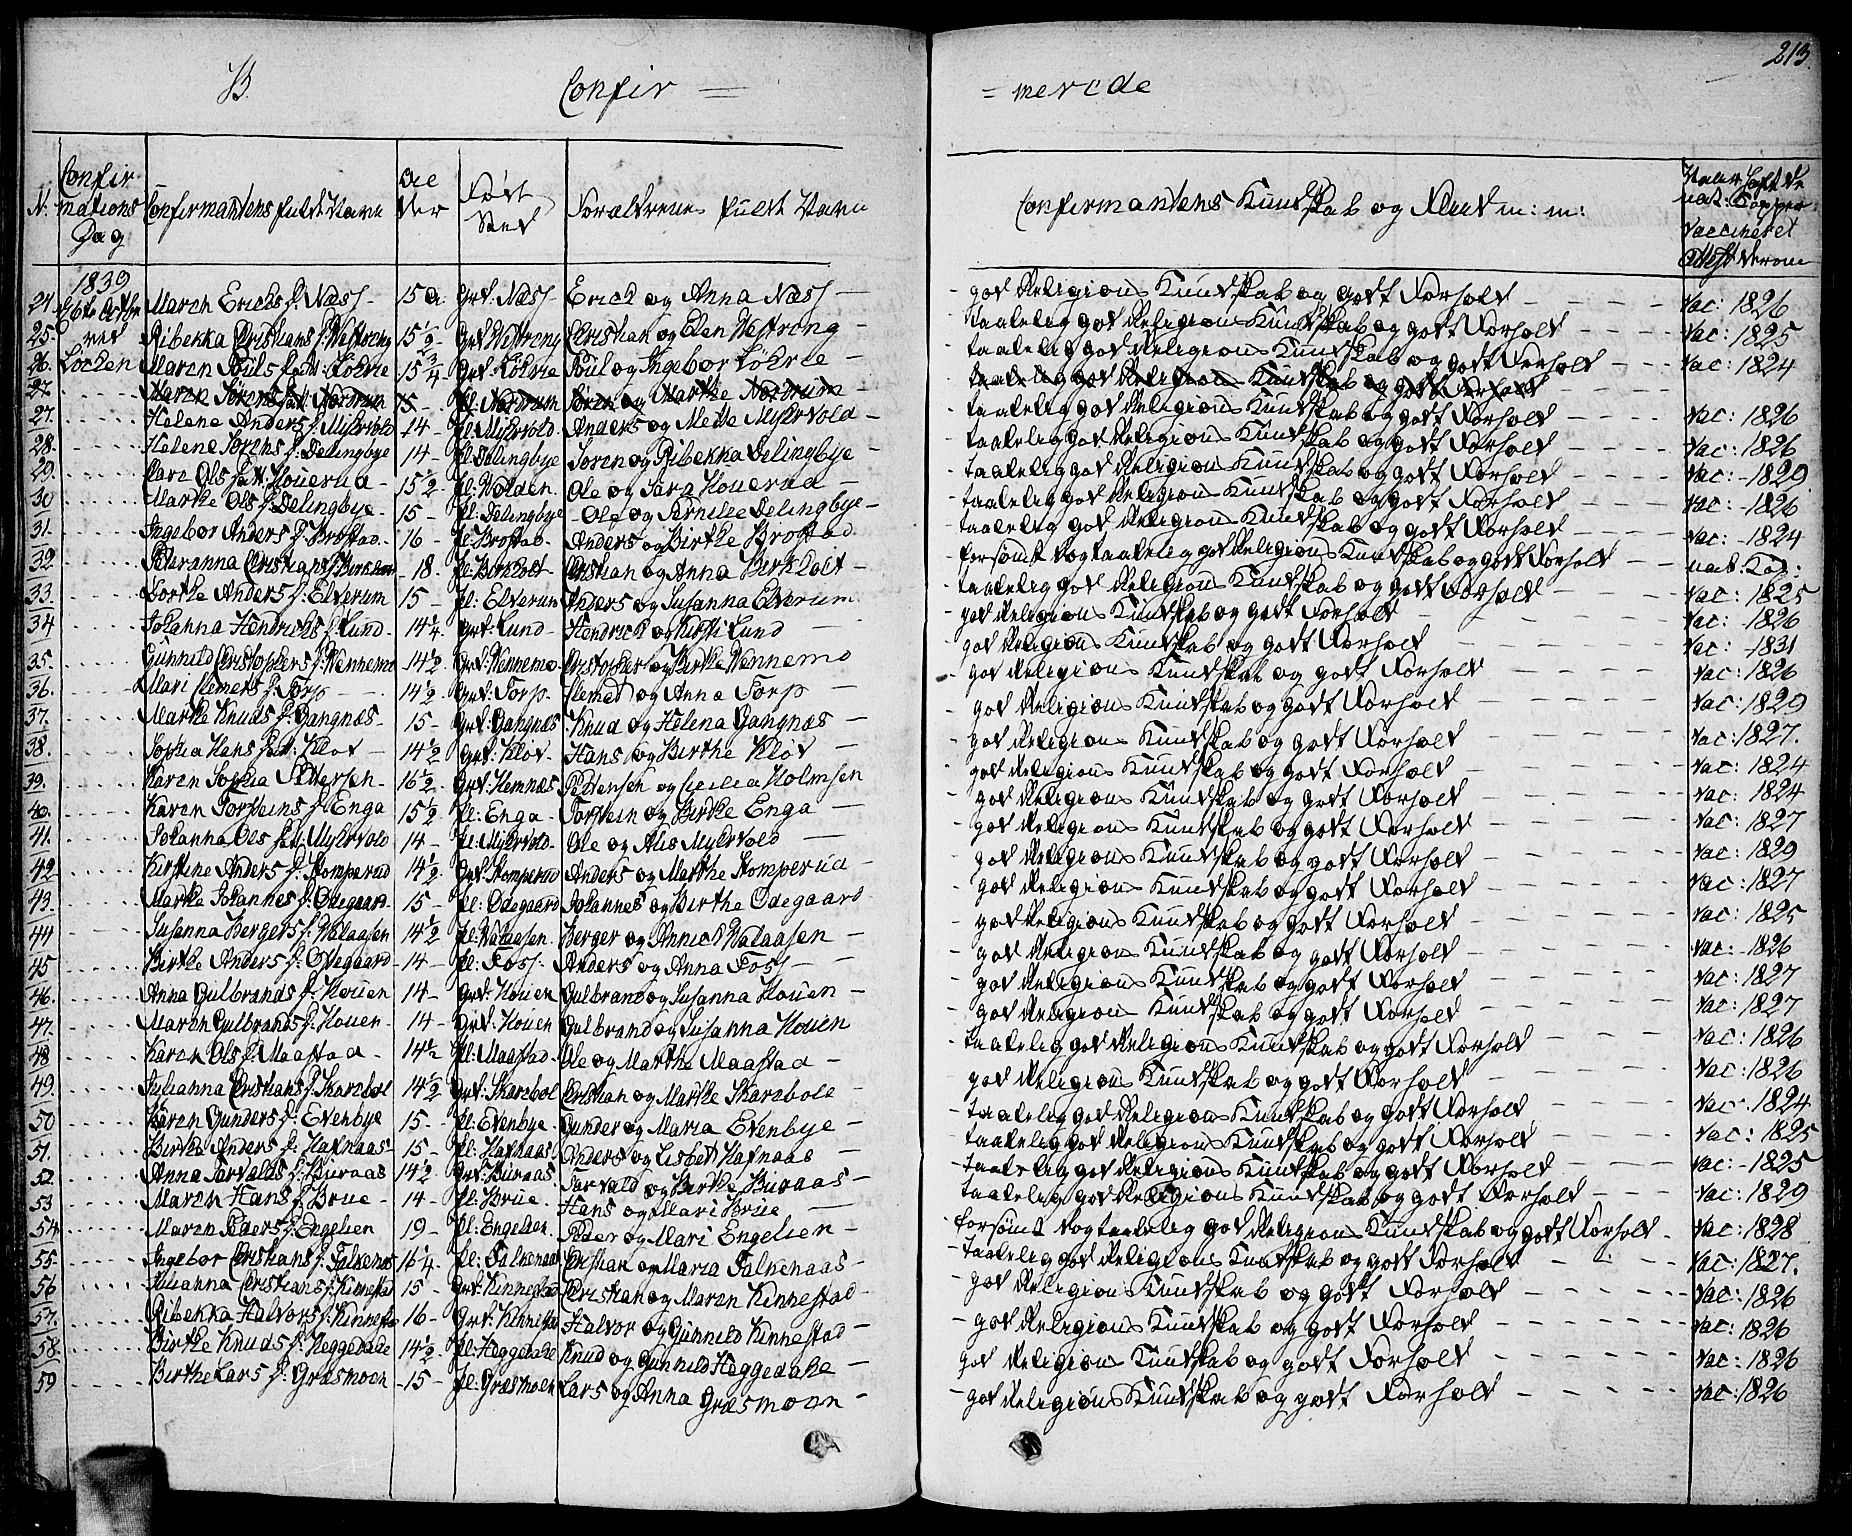 213.
B. Confir = = merede
N. Confirmations Dag Confirmandens fulde Navn Al der Føde Sted Forældrenes fulde Navn Confirmandens Kundskab og Flid m: m: Vaccineret
1839
24 6te Octbr Maren Erichs d. Næss 15 a. Grd: Næss Erich og Anna Næss god Religions Kundskab og godt Forhold Vac: 1826
25 ved Ribekka Cristians d. Westreng 15 1/2 Grd Westreng Cristian og Elen Westreng taalelig god Religions Kundskab og godt Forhold Vac: 1825
26. Løcken Maren Pouls datt: Løkrie 15 3/4 Grd: Løkrie Poul og Ingebor Løkrie taalelig god Religions Kundskab og godt Forhold Vac: 1824
27. Maren Sørens datt Nordrum 15 Pl: Nordrum Søren og Marthe Nordrum taalelig god Religions Kundskab og godt Forhold
27. Helene Anders d. Mykrvold 14 Pl: Mykrvold Anders og Mette Mykrvold taalelig god Religions Kundskab og godt Forhold Vac: 1826
28. Helene Sørens d. Delingbye 14 Pl Delingbye Søren og Ribekka Delingbye taalelig god Religions Kundskab og godt Forhold Vac: 1826
29. Ols datt: Houerud 15 1/2 Pl: Volden Ole og Sara Houerud taalelig god Religions Kundskab og godt Forhold Vac: 1829
30 Marthe Ols d. Delingbye 15 Pl: Delingbye Ole og Pernille Delingbye taalelig god Religions Kundskab og godt Forhold Vac: 1826
31. Ingebor Anders d. Brostad 16 Pl: Brostad Anders og Birthe Brostad taalelig god Religions Kundskab og godt Forhold Vac: 1824
32. Peteranna Cristians d. 18 Pl: Berkholt Cristian og Anna Berkholt forsømt dog taalelig god Religions Kundskab og godt Forhold nat: Kop:
33. Dorthe Anders d. Elverum 15 Pl: Elverum Anders og Susanna Elverum taalelig god Religions Kundskab og godt Forhold Vac: 1825
34 Johanna Hendrichs d. Lund 14 1/4 Grd: Lund Hendrich og Kirsti Lund god Religions Kundskab og godt Forhold Vac: 1826
35. Gunnild Cristophers d. Wennemo 14 1/2 Grd: Wennemo Cristopher og Birthe Wennemo god Religions Kundskab og godt Forhold Vac: 1831
36. Mari Clemets d. Torp 14 1/2 Grd: Torp Clemet og Anna Torp god Religions Kundskab og godt Forhold Vac: 1826
37. Marthe Knuds d. Gangnæs 15 Grd: Gangnæs Knud og Helena Gangnæs god Religions Kundskab og godt Forhold Vac: 1829
38. Sophia Hans datt: Klov 14 1/2 Grd: Klov Hans og Birthe Klov god Religions Kundskab og godt Forhold Vac: 1827.
39. Karen Sophia Pettersen 16 1/2 Grd: Hemnæs Pettersen og Cicilia Holmsen god Religions Kundskab og godt Forhold Vac: 1824
40. Karen Torsteins d. Enga 15 1/2 Pl: Enga Torstein og Birthe Enga god Religions Kundskab og godt Forhold Vac: 1824
41. Johanna Ols datt Mykrvold 14 Pl: Mykrvold Ole og Alis Mykrvold god Religions Kundskab og godt Forhold Vac: 1827
42 Kirstine Anders d. Stomperud 14 1/2 Grd: Stomperud Anders og Marthe Stomperud god Religions Kundskab og godt Forhold Vac: 1829
43. Marthe Johannes d. Ødegaard 15 Pl: Ødegaard Johannes og Birthe Ødegaard god Religions Kundskab og godt Forhold Vac: 1827
44 Susanna Bergers d. Walaasen 14 1/2 Pl: Walaasen Berger og Annich Walaasen god Religions Kundskab og godt Forhold Vac: 1825
45 Birthe Anders d. Ødegaard 14 Pl: Foss Anders og Anna Foss god Religions Kundskab og godt Forhold Vac: 1826
46. Anna Gulbrands d. Houen 14 Grd: Houen Gulbrand og Susanna Houen god Religions Kundskab og godt Forhold Vac: 1827
47. Maren Gulbrands d. Houen 14 Grd: Houen Gulbrand og Susanna Houen god Religions Kundskab og godt Forhold Vac: 1827
48 Karen Ols d. Maastad 14 1/2 Pl: Maastad Ole og Marthe Maastad taalelig god Religions Kundskab og godt Forhold Vac: 1826
49. Julianna Cristians d. Skarebøl 14 1/2 Grd: Skarebøl Cristian og Marthe Skarebøle god Religions Kundskab og godt Forhold Vac: 1826
50 Karen Gunders d. Evenbye 15 Pl: Evenbye Gunder og Maria Evenbye taalelig god Religions Kundskab og godt Forhold Vac: 1824
51. Birthe Anders d. Hafnaas 15 Pl: Hafnaas Anders og Lisbet Hafnaas taalelig god Religions Kundskab og godt Forhold Vac: 1825
52 Anna Torvalds d. Buraas 14 1/2 Grd: Buraas Torvald og Birthe Buraas taalelig god Religions Kundskab og godt Forhold Vac: 1825
53 Maren Hans d. Brue 14 Pl: Brue Hans og Mari Brue taalelig god Religions Kundskab og godt Forhold Vac: 1829
54. Maren Peders d. Engelien 19 Pl: Engelien Peder og Mari Engelien forsømt dog taalelig god Religions Kundskab og godt Forhold Vac: 1828
55. Ingebor Cristians d. Falkenaas 16 1/4 Pl: Falkenaas Cristian og Maria Falkenaas taalelig god Religions Kundskab og godt Forhold Vac: 1827.
56 Julianna Cristians d. Kinnestad 15 Grd: Kinnestad Cristian og Maren Kinnestad god Religions Kundskab og godt Forhold Vac: 1826
57. Ribekka Halvors d. Kinnestad 16 Grd: Kinnestad Halvor og Gunnild Kinnestad god Religions Kundskab og godt Forhold Vac: 1826
58 Birthe Knuds d. Heggedale 14 1/2 Pl: Heggedale Knud og Gunnild Heggedale god Religions Kundskab og godt Forhold Vac: 1826
59 Birthe Lars d. Græsmoen 15 Pl: Græsmoen Lars og Anna Græsmoen god Religions Kundskab og godt Forhold Vac: 1826